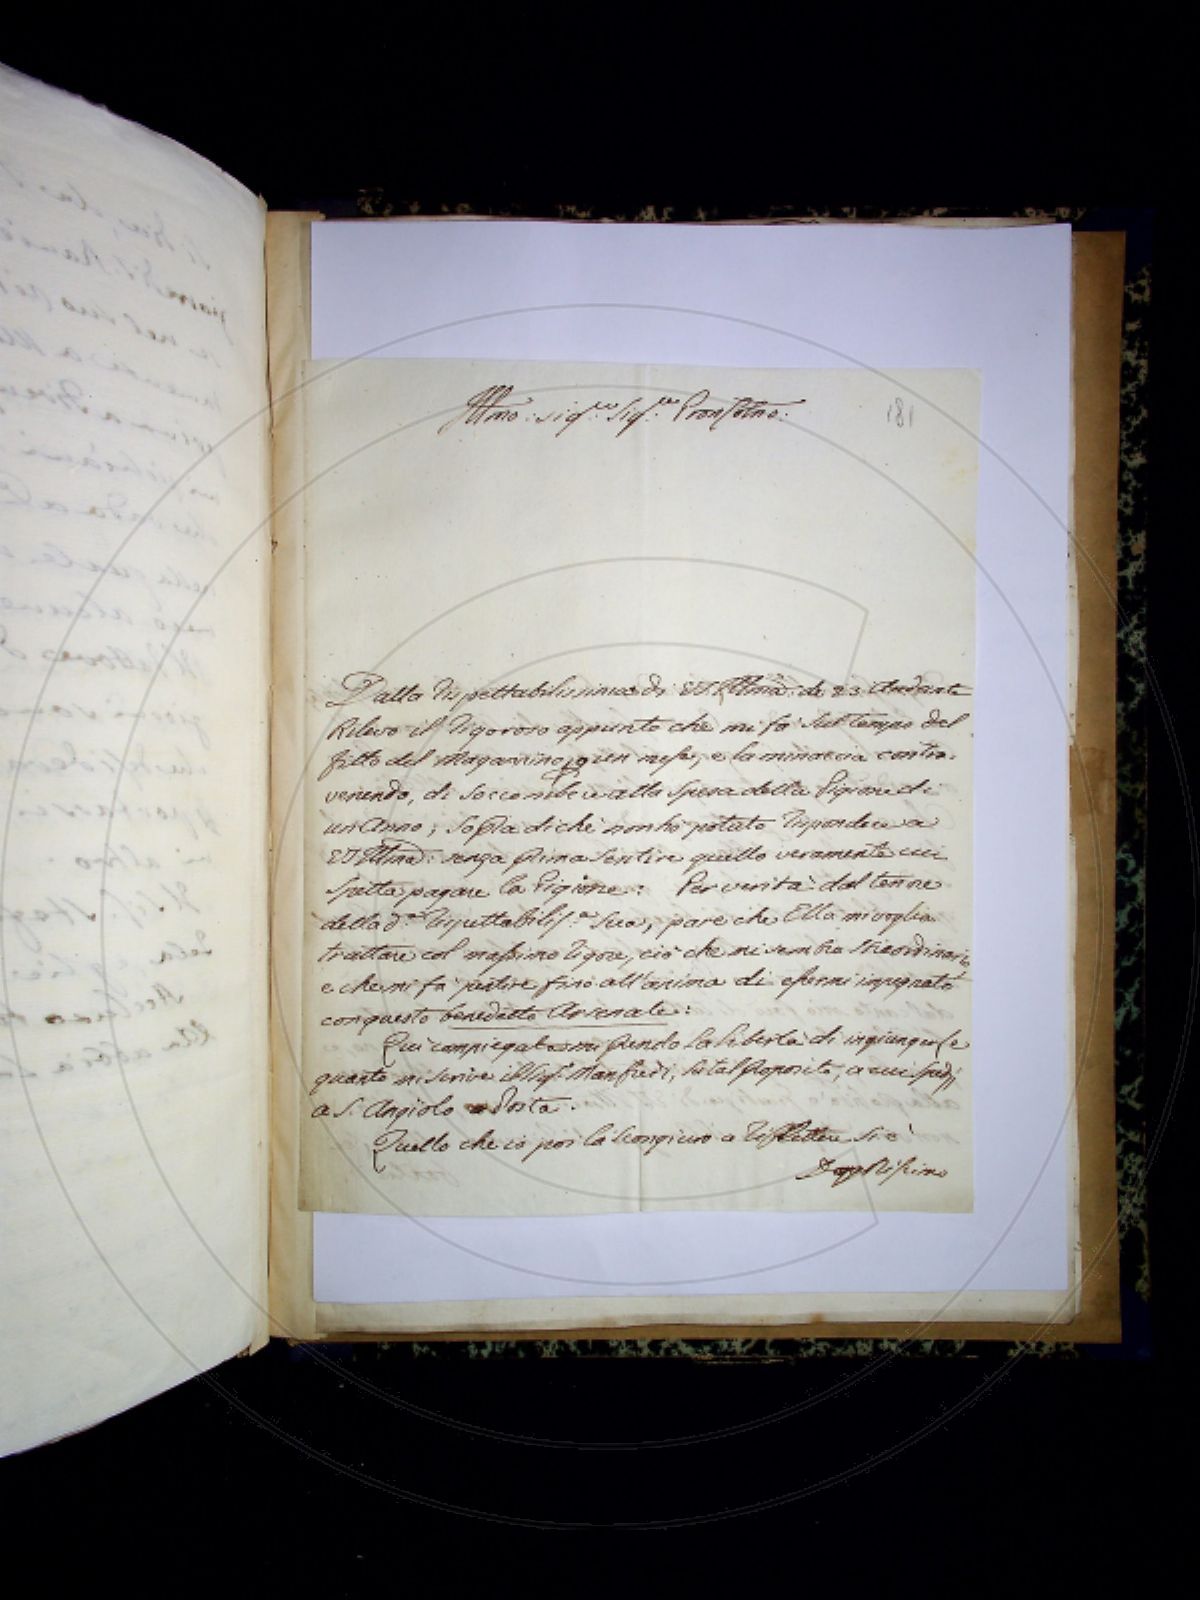 Illmo: Sig.re Sig.re Pron Colmo:
181
Dalla rispettabilissima di VS. Illma: de 23 Andante
Rilevo il rigoroso appunto che mi fa sul tempo del
fitto del Magazzino, p. un mese, e la minaccia contra-
venendo, di soccombere alla spesa della Pigione di
un Anno; sopra di che non hò potuto rispondere a
VS Illma: senza prima sentire quello veramente cui
spetta pagare la Pigione: Per verità dal tenore
della d.a rispettabiliss.a Sua, pare che Ella mi voglia
trattare col massimo rigore, ciò che mi sembra straordinario,
e che mi fà pentire fino all'anima di essermi impegnato
con questo benedetto Arsenale:
Qui compiegata mi prendo la libertà di ingiungerle
quanto mi scrive il Sig.r Manfredi, su tal proposito, a cui spedj
a S. Angiolo a Posta.
Quello che io poi la scongiuro a riflettere si è